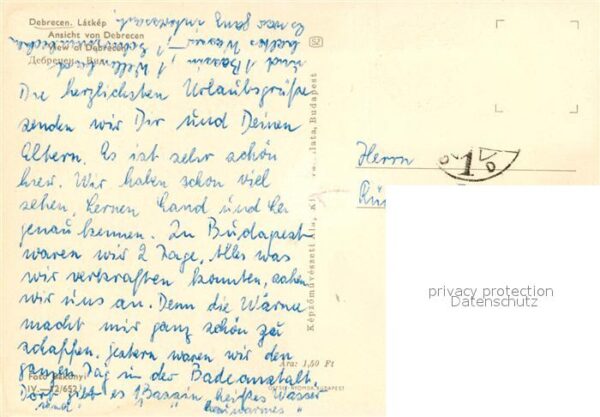 Debrecen. Látkép
Ansicht von Debrecen
View of Debrecen
Дебрецен. Вид
Die herzlichsten Urlaubsgrüße
senden wir Dir und Deinen
Eltern. Es ist sehr schön
hier. Wir haben schon viel
sehen, lernen Land und Le.
genau kennen. In Budapest
waren wir 2 Tage. Alles was
wir verkraften konnten, sahen
wir uns an. Denn die Wärme
macht mir ganz schön zu
schaffen. Gestern waren wir den
ganzen Tag in der Badeanstalt.
Dort gibt es 1 Bassin heißes Wasser
" und " lauwarmes "
und 1 Bassin, 1 Wellenbad
kaltes Wasser
Es war ganz interessant.
Foto
IV.
Ara: 1,50 Ft
Képzőművészeti Alap Budapest
Herrn
1
privacy protection
Datenschutz